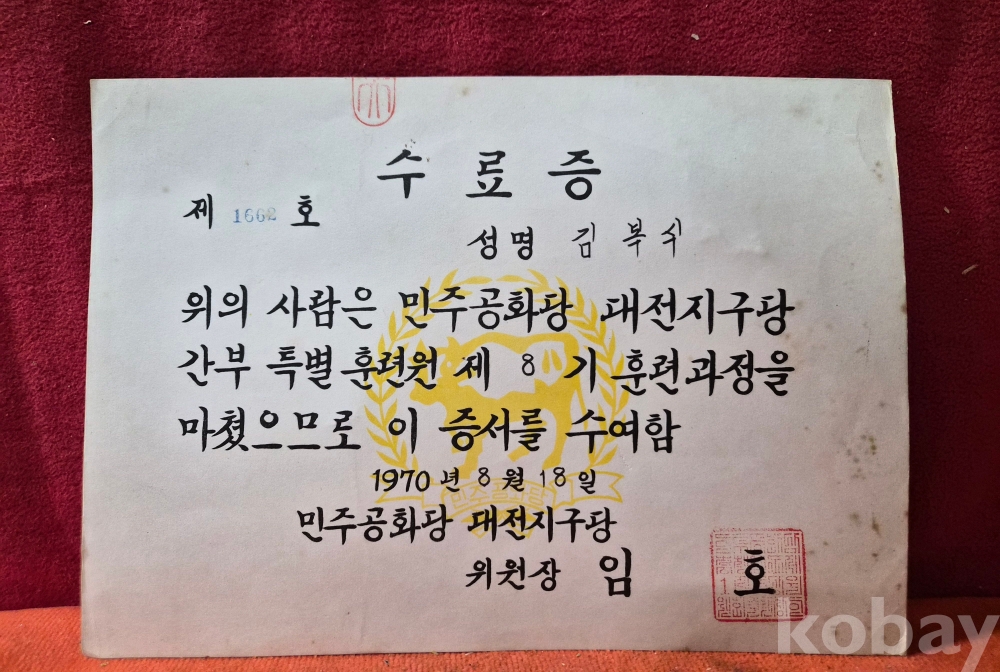 수료증
제 1662 호
성명 김복식
위의 사람은 민주공화당 대전지구당
간부 특별 훈련원 제 8 기 훈련과정을
마쳤으므로 이 증서를 수여함
1970년 8월 18일
민주공화당
민주공화당 대전지구당
위원장 임 호
kobay